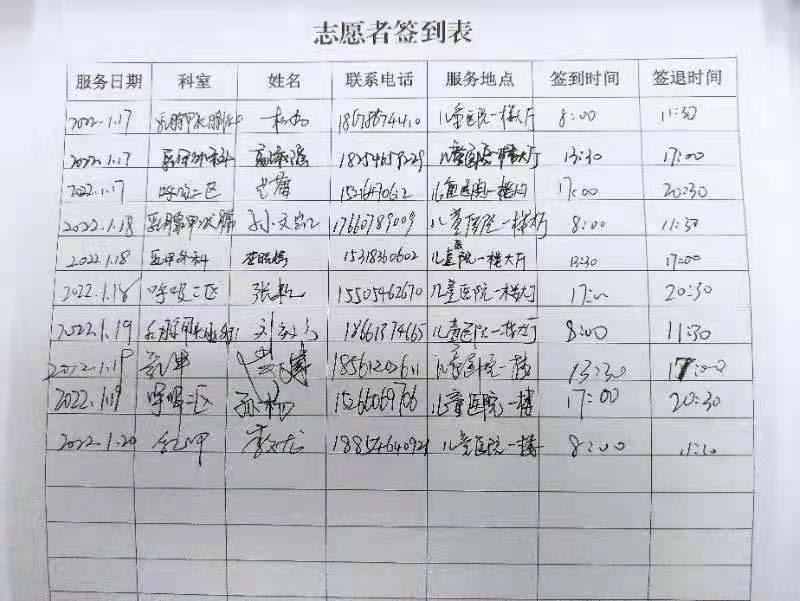 志愿者签到表
服务日期 科室 姓名 联系电话 服务地点 签到时间 签退时间
2022.1.17 乳腺甲状腺外科 18678674410 儿童医院一楼大厅 8:00 11:30
2022.1.17 乳甲外科 18254659229 儿童医院一楼大厅 13:30 17:00
2022.1.17 呼吸二区 儿童医院一楼 17:00 20:30
2022.1.18 乳腺甲状腺 孙文 17660789009 儿童医院一楼 8:00 11:30
2022.1.18 乳甲外科 15318360602 儿童医院一楼大厅 13:30 17:00
2022.1.18 呼吸二区 张 15505462670 儿童医院一楼大厅 17:00 20:30
2022.1.19 乳腺甲状腺 刘 18661374665 儿童医院一楼大厅 8:00 11:30
2022.1.19 乳甲 儿童医院一楼 13:30 17:00
2022.1.19 呼吸二区 孙杨 15266069706 儿童医院一楼 17:00 20:30
2022.1.20 乳甲 李文龙 儿童医院一楼 8:00